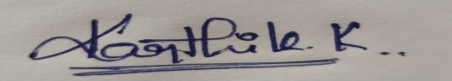 Karthik. K..